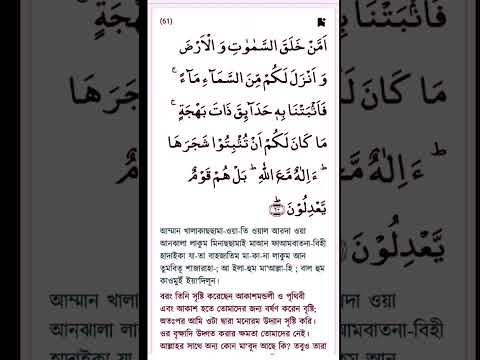 (61)
اَمَّنْ خَلَقَ السَّمٰوٰتِ وَ الْاَرْضَ
وَ اَنْزَلَ لَكُمْ مِّنَ السَّمَآءِ مَآءً ۚ
فَاَنْۢبَتْنَا بِهٖ حَدَآئِقَ ذَاتَ بَهْجَةٍ ۚ
مَا كَانَ لَكُمْ اَنْ تُنْۢبِتُوْا شَجَرَهَا
ؕ ءَاِلٰهٌ مَّعَ اللّٰهِ ؕ بَلْ هُمْ قَوْمٌ
یَّعْدِلُوْنَ ﴿ؕ۶۰﴾
আম্মান খালাকাছছামা-ওয়া-তি ওয়াল আরদা ওয়া
আনঝালা লাকুম মিনাছছামাই মাআন ফাআমবাতনা-বিহী
হাদাইকা যা-তা বাহজাতিম মা-কা-না লাকুম আন
তুমবিতূ শাজারাহা-; আ ইলা-হুম মা'আল্লা-হি ; বাল হুম
কাওমুইঁ ইয়া'দিলূন।
বরং তিনি সৃষ্টি করেছেন আকাশমন্ডলী ও পৃথিবী
এবং আকাশ হতে তোমাদের জন্য বর্ষণ করেন বৃষ্টি;
অতঃপর আমি ওটা দ্বারা মনোরম উদ্যান সৃষ্টি করি।
ওর বৃক্ষাদি উদ্গত করার ক্ষমতা তোমাদের নেই।
আল্লাহর সাথে অন্য কোন মা'বূদ আছে কি? তবুও তারা